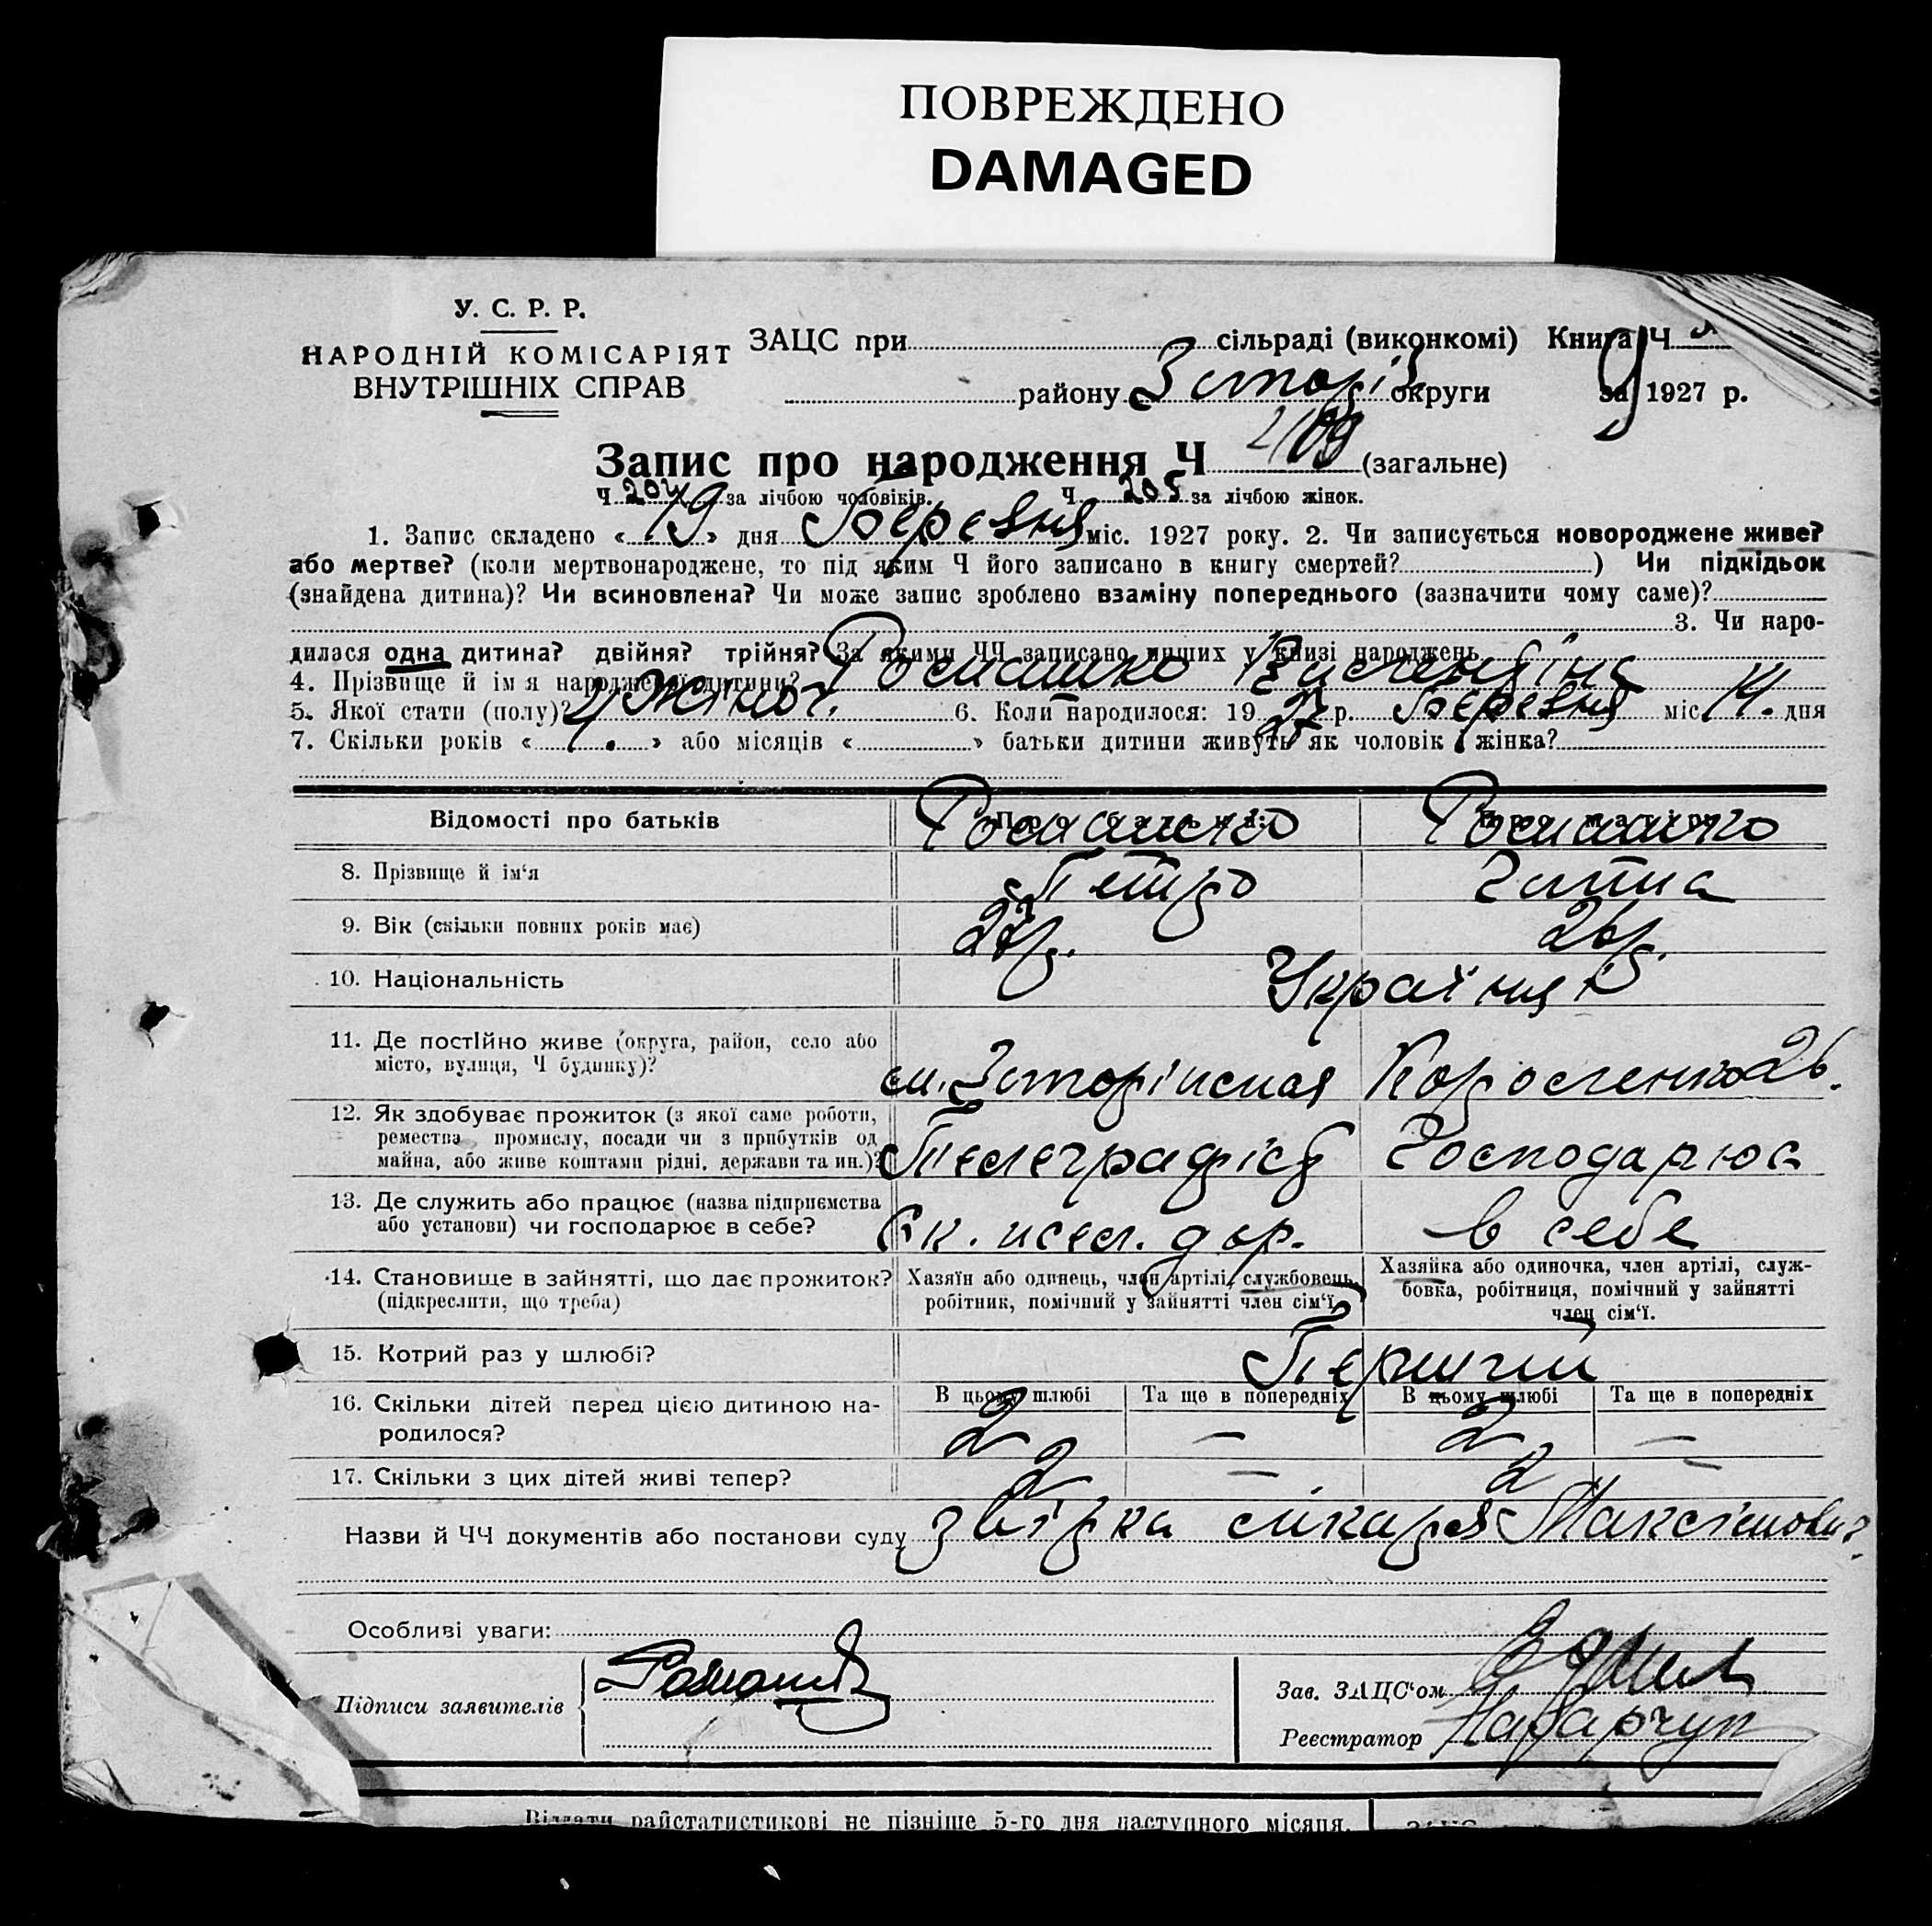 ПОВРЕЖДЕНО
DAMAGED
У. С. Р. Р.
НАРОДНІЙ КОМІСАРІЯТ
ВНУТРІШНІХ СПРАВ
ЗАЦС при сільраді (виконкомі) Книга Ч
району округи за 1927 р.
Запис про народження Ч (загальне)
Ч 204 за лічбою чоловіків. Ч 205 за лічбою жінок.
1. Запис складено « 19 » дня Березня міс. 1927 року. 2. Чи записується новороджене живе?
або мертве? (коли мертвонароджене, то під яким Ч його записано в книгу смертей? ) Чи підкідьок
(знайдена дитина)? Чи всиновлена? Чи може запис зроблено взаміну попереднього (зазначити чому саме)?
3. Чи наро-
дилася одна дитина? двійня? трійня? За якими ЧЧ записано инших у книзі народжень
4. Прізвище й ім'я народженої дитини? Ромашко
5. Якої стати (полу)? Жіноч. 6. Коли народилося: 1927 р. Березня міс. 14. дня
7. Скільки років « » або місяців « » батьки дитини живуть як чоловік і жінка?
Відомості про батьків Про батька: Про матір:
Ромашко Ромашко
8. Прізвище й ім'я Петро
9. Вік (скільки повних років має) 27р. 26р.
10. Національність Українці
11. Де постійно живе (округа, район, село або
місто, вулиця, Ч будинку)? Короленко 26.
12. Як здобуває прожиток (з якої саме роботи,
ремества промислу, посади чи з прибутків од
майна, або живе коштами рідні, держави та ин.)? Телеграфіст Господарює
13. Де служить або працює (назва підприємства
або установи) чи господарює в себе? дор. в себе
14. Становище в зайнятті, що дає прожиток?
(підкреслити, що треба)
Хазяїн або одинець, член артілі, службовець,
робітник, помічний у зайнятті член сім'ї
Хазяйка або одиночка, член артілі, служ-
бовка, робітниця, помічний у зайнятті
член сім'ї.
15. Котрий раз у шлюбі? Перший
В цьому шлюбі Та ще в попередніх В цьому шлюбі Та ще в попередніх
16. Скільки дітей перед цією дитиною на-
родилося? 2 — 2 —
17. Скільки з цих дітей живі тепер? 2 — 2 —
Назви й ЧЧ документів або постанови суду
Особливі уваги:
Підписи заявителів
Зав. ЗАЦС'ом
Реєстратор
Віддати райстатистикові не пізніше 5-го дня наступного місяця.